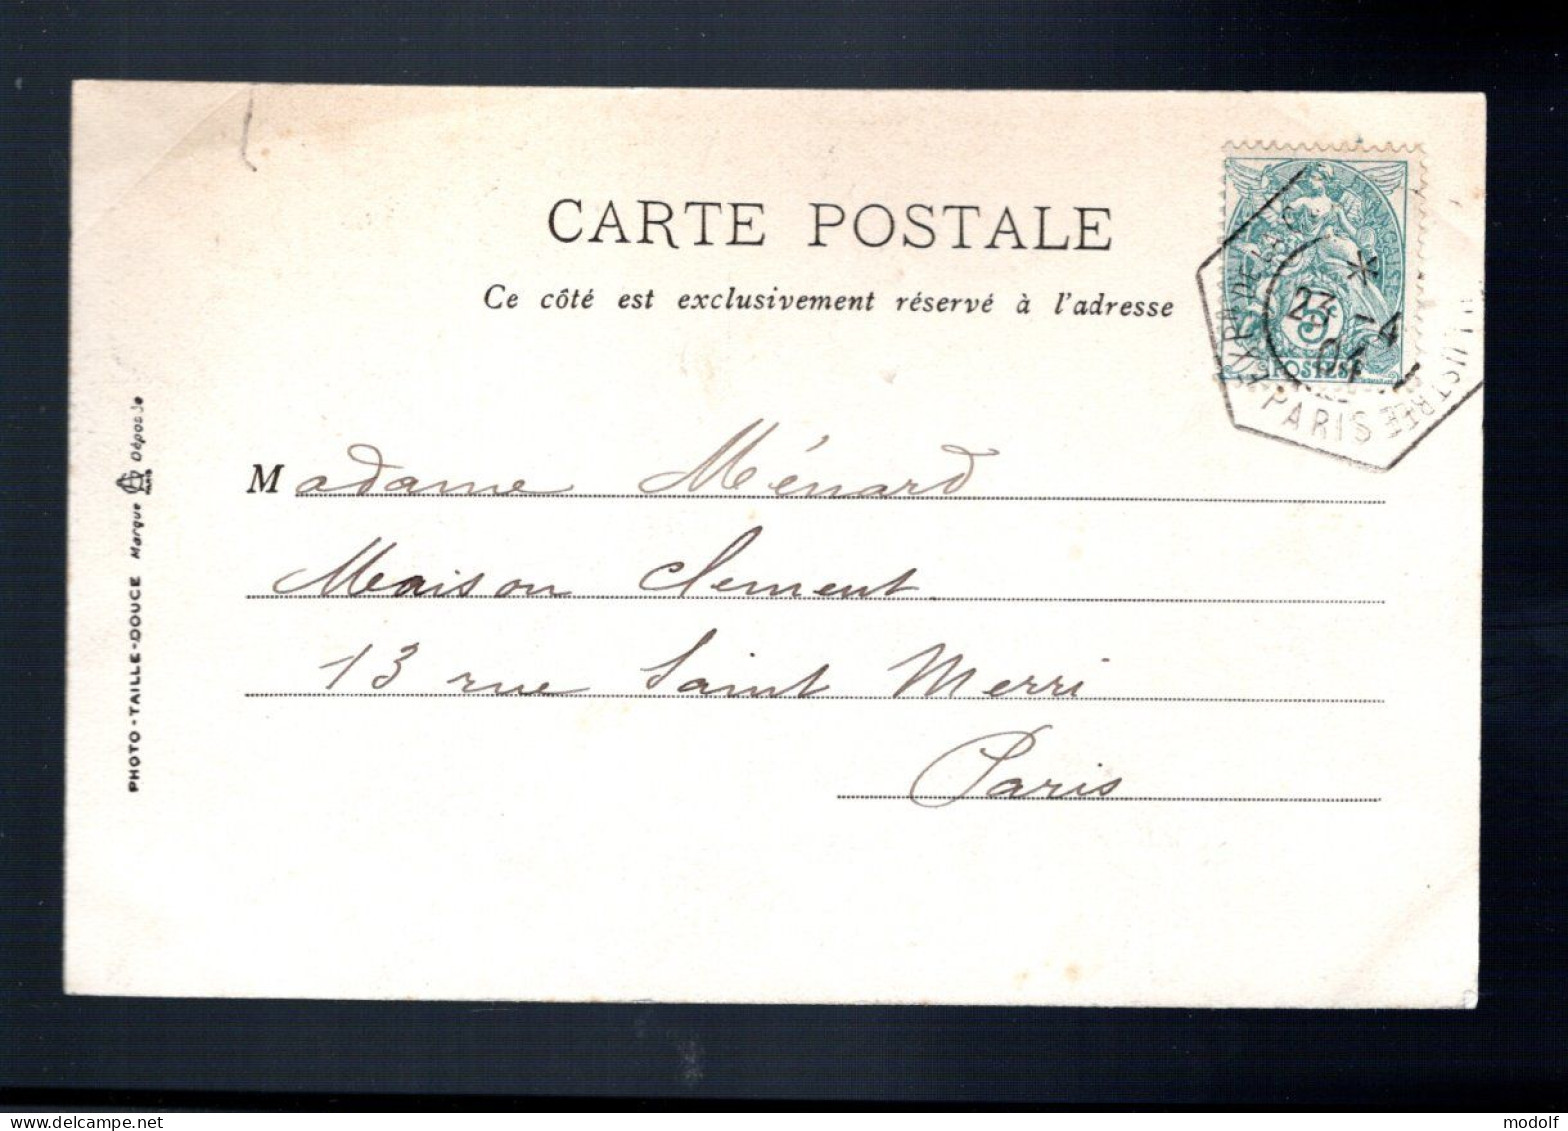 CARTE POSTALE
Ce côté est exclusivement réservé à l'adresse
23 -4
04
5
POSTES
PARIS
Madame Ménard
Maison Clement
13 rue Saint Merri
Paris
PHOTO-TAILLE-DOUCE Marque Déposée
modolf